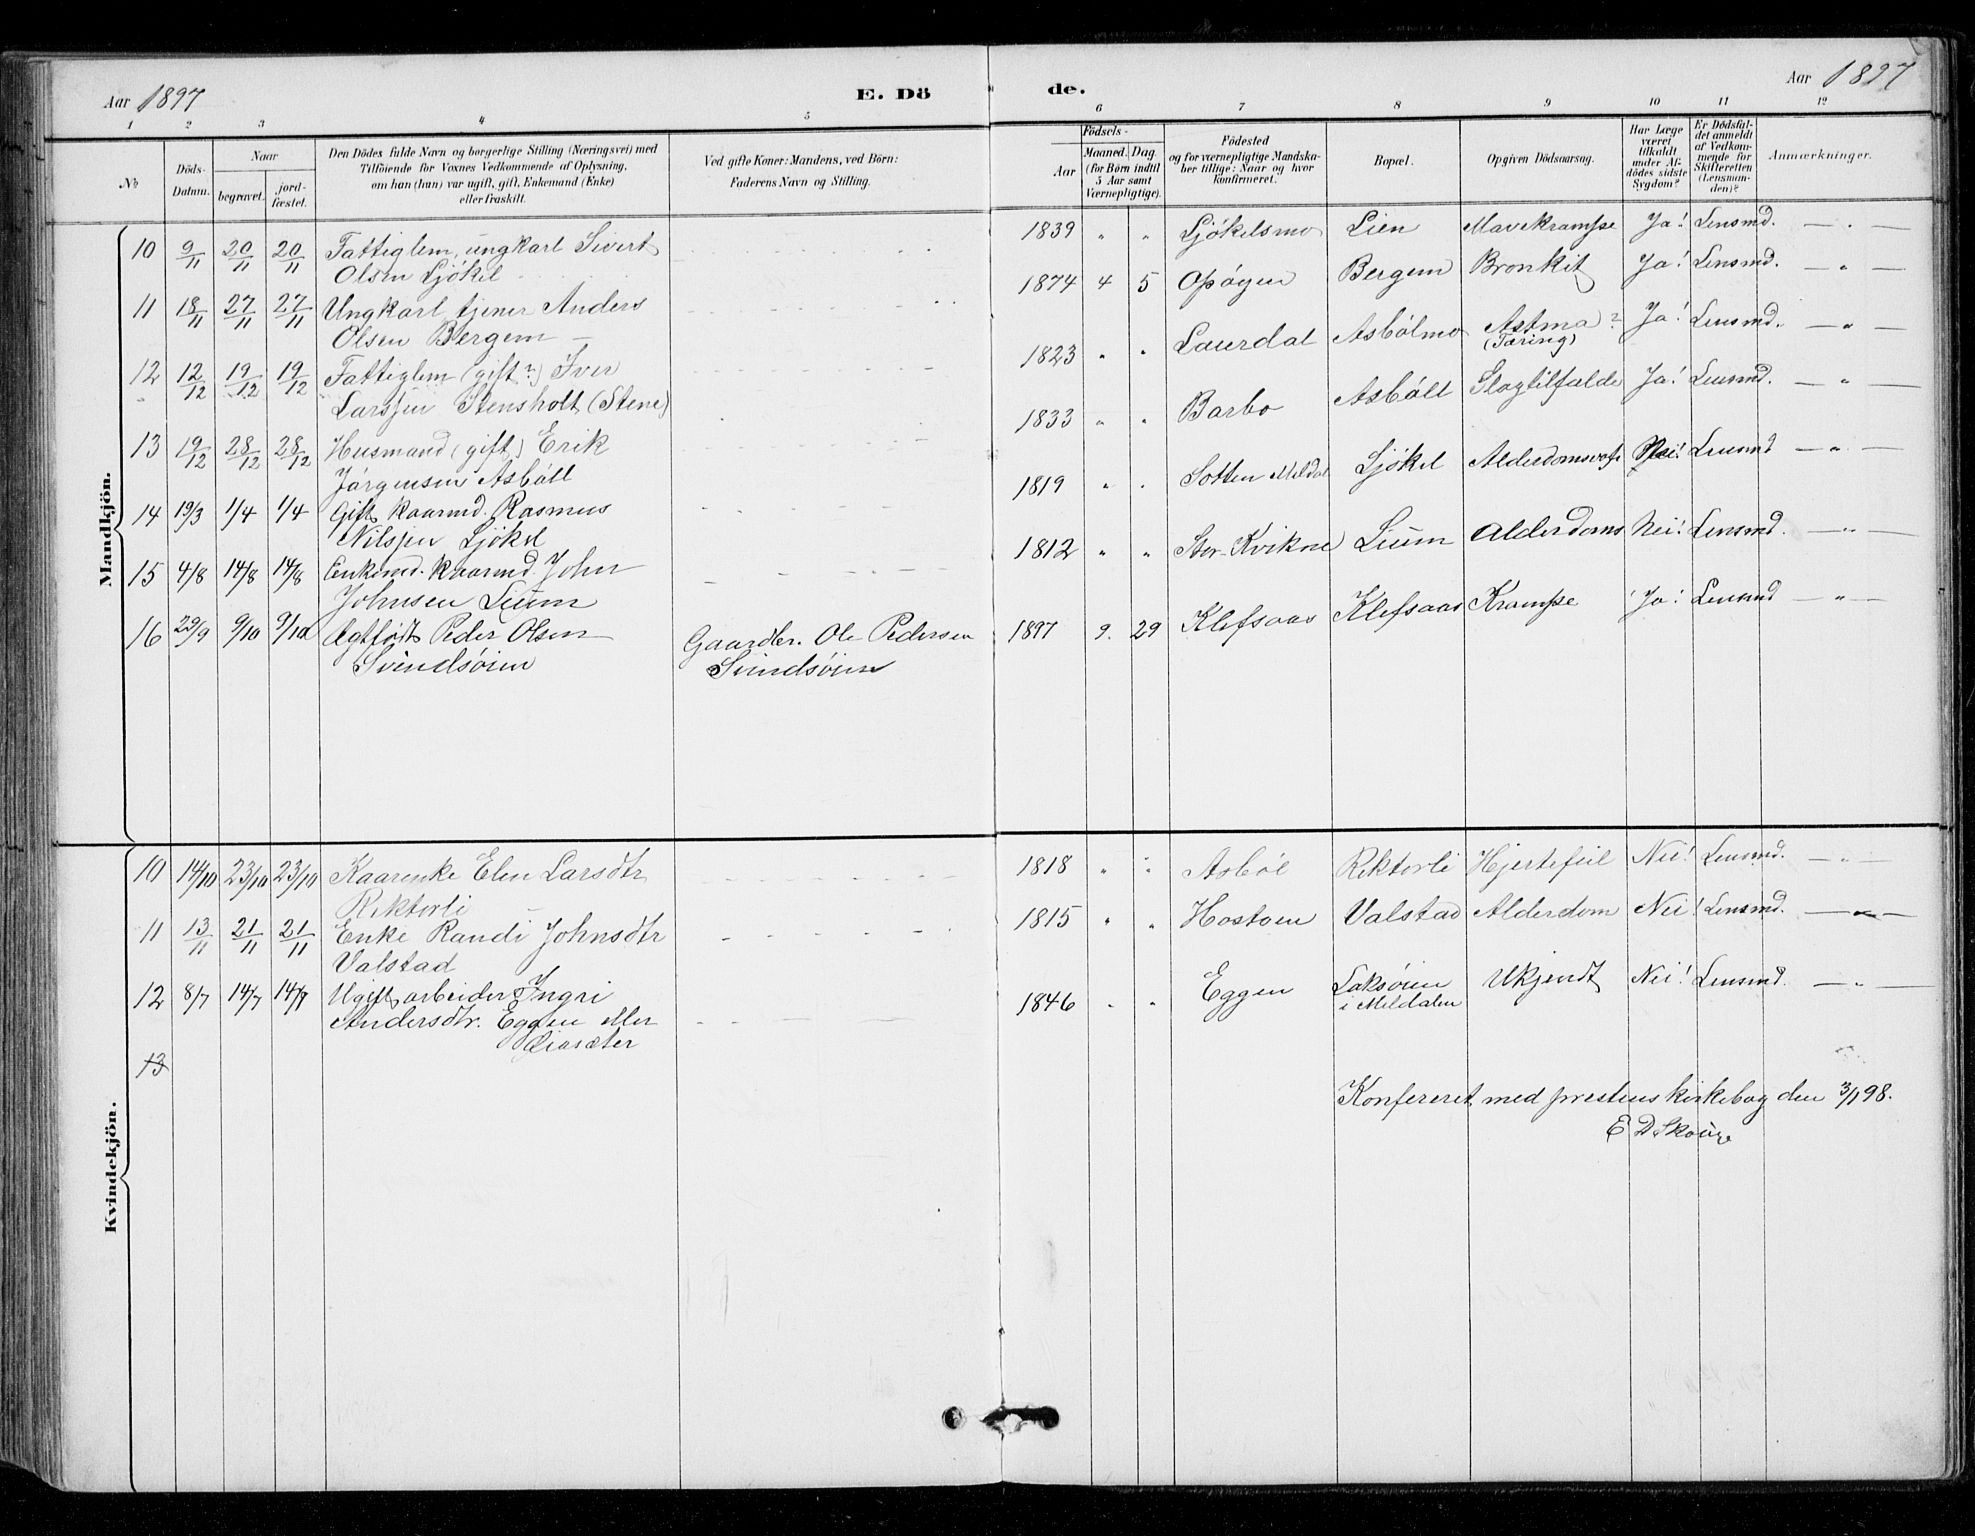 Aar 1897
E. Dö
de.
Aar 1897
1 2 3 4 5 6 7 8 9 10 11 12
No
Döds-
Datum.
Naar
begravet.
jord-
fæstet.
Den Dödes fulde Navn og borgerlige Stilling (Næringsvei) med
Tilföiende for Voxnes Vedkommende af Oplysning,
om han (hun) var ugift, gift, Enkemand (Enke)
eller fraskilt.
Ved gifte Koner: Mandens, ved Börn:
Faderens Navn og Stilling.
Födsels-
Aar
Maaned. Dag.
(for Börn indtil
5 Aar samt
Værnepligtige).
Födested
og for værnepligtige Mandska-
ber tillige: Naar og hvor
konfirmeret.
Bopæl.
Opgiven Dödsaarsag.
Har Læge
været
tilkaldt
under Af-
dødes sidste
Sygdom?
Er Dödsfal-
det anmeldt
af Vedkom-
mende for
Skifteretten
(Lensman-
den)?
Anmærkninger.
Mandkjön.
10 9/11 20/11 20/11 Fattiglem, ungkarl Sivert 1839 " " Ljökelsmo Lien Mavekrampe Ja! Lensmd. — " —
Olsen Ljökel
11 18/11 27/11 27/11 Ungkarl tjener Anders 1874 4 5 Opöyen Bergem Bronkit Ja! Lensmd. — " —
Olsen Bergem —
12 12/12 19/12 19/12 Fattiglem (gift?) Iver 1823 " " Laurdal Asbölmo Astma? Ja! Lensmd. — " —
(Tæring)
Larssen Stensholt (Stene)
13 19/12 28/12 28/12 Husmand (gift) Erik 1833 " " Barbo Asböll Slagtilfælde Ja! Lensmd. — " —
Jörgensen Asböll
14 19/3 1/4 1/4 Gift kaarmd. Rasmus 1819 " " Sotten Meldal Ljökel Nei! Lensmd — " —
Nilssen Ljökel
15 4/8 14/8 14/8 Enkemd. kaarmd. John 1812 " " Stor-Kvikne Lium Alderdoms Nei! Lensmd. — " —
Johnsen Lium
16 29/9 9/10 9/10 Ægtfødt Peder Olsen Gaardbr. Ole Pedersen 1897 9. 29 Klefsaas Klefsaas Krampe Ja! Lensmd — " —
Svindsöien Svindsöien
Kvindekjön.
10 14/10 23/10 23/10 Kaarenke Elen Larsdtr 1818 " " Asböl Rektorli Hjertefeil Nei! Lensmd. — " —
Rektorli
11 13/11 21/11 21/11 Enke Randi Johnsdtr 1815 " " Hostoen Valstad Alderdom Nei! Lensmd. — " —
Valstad
12 8/7 14/7 14/7 Ugift arbeider Ingri 1846 " " Eggen Laksöien Ukjendt Nei! Lensmd. — " —
i Meldalen
Andersdtr. Eggen eller
13
Konfereret med prestens kirkebog den 3/1 98.
E D Skauge